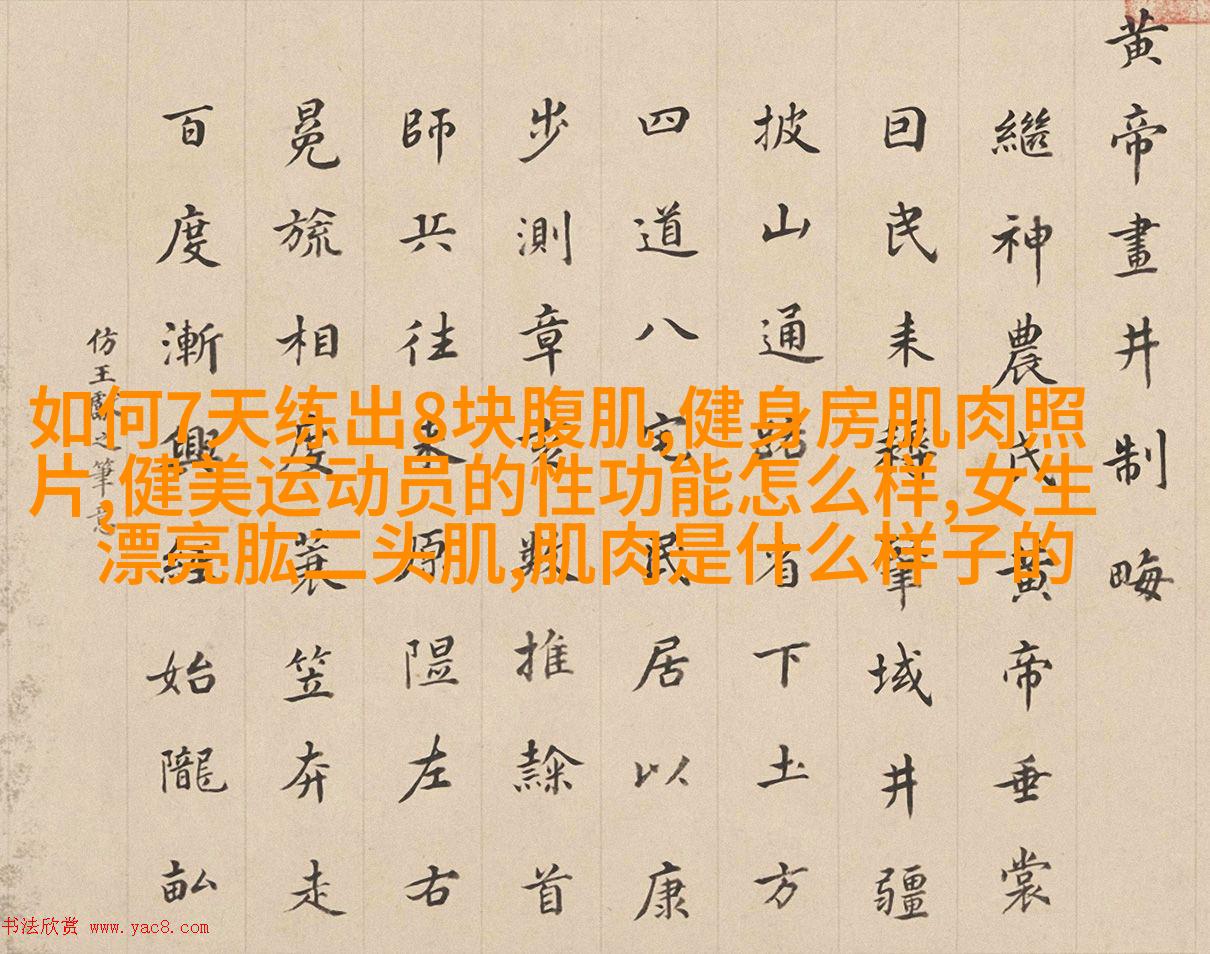 黄帝畫井制畮
繼神農氏黄帝垂裳
囙民耒耨肇域井疆
披山通路省下土方
四道八宅民居以康
步測章亥數推隸首
師兵徃来原隰左右
冕旒相度蓑笠奔走
百度漸興經始隴畝
仿王獻之筆意
如何7天练出8块腹肌,健身房肌肉照
片,健美运动员的性功能怎么样,女生
漂亮肱二头肌,肌肉是什么样子的
书法欣赏 www.yac8.com